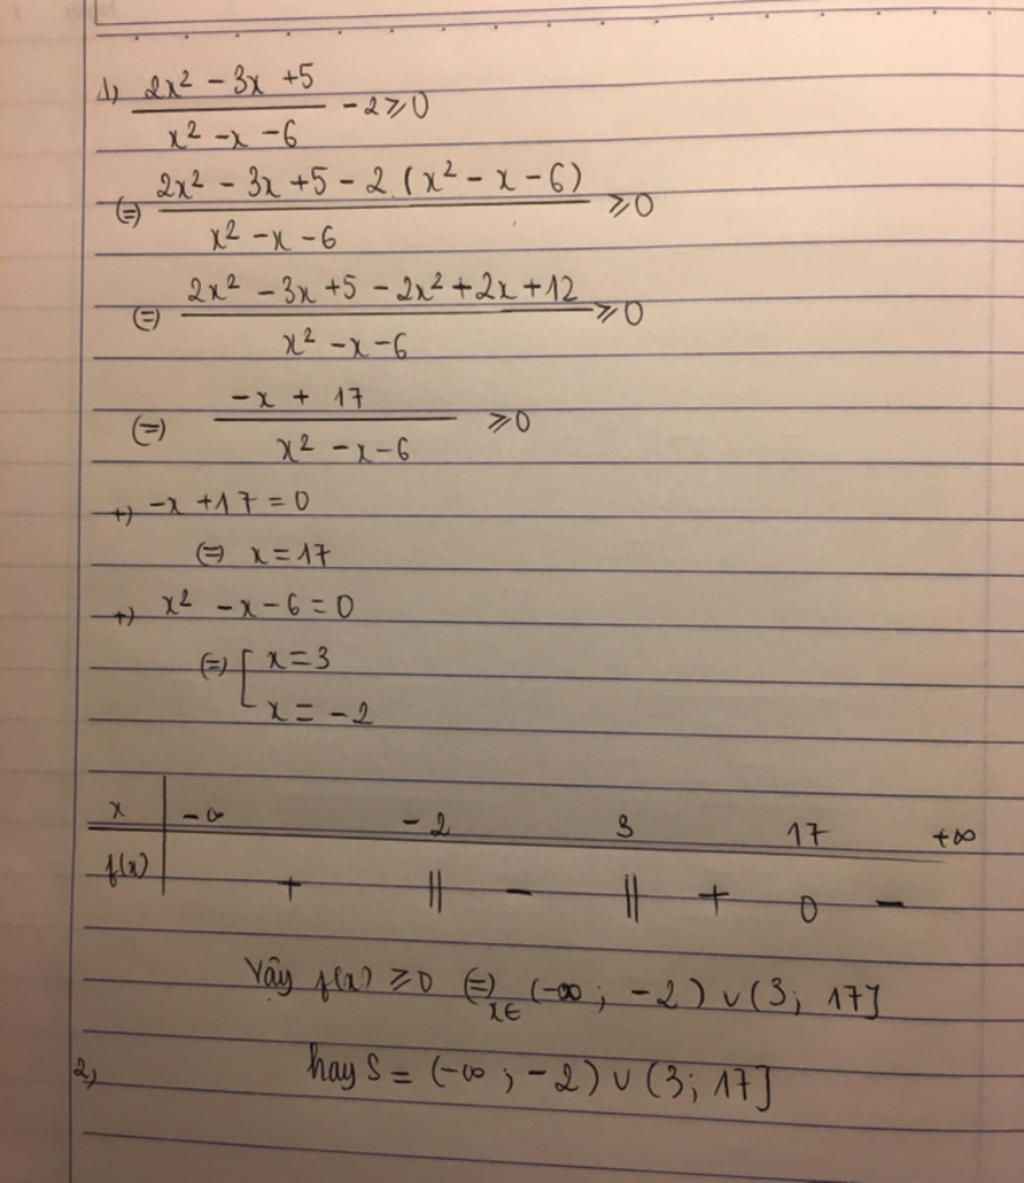 1) (2x² - 3x + 5)/(x² - x - 6) - 2 ⩾ 0
(=) (2x² - 3x + 5 - 2.(x² - x - 6))/(x² - x - 6) ⩾ 0
(=) (2x² - 3x + 5 - 2x² + 2x + 12)/(x² - x - 6) ⩾ 0
(=) (-x + 17)/(x² - x - 6) ⩾ 0
+) -x + 17 = 0
(=) x = 17
+) x² - x - 6 = 0
(=) [ x = 3
x = -2
x | -∞ -2 3 17 +∞
f(x) | + || - || + 0 -
Vậy f(x) ⩾ 0 (=) x∈ (-∞; -2) ∪ (3; 17]
hay S = (-∞; -2) ∪ (3; 17]
2)